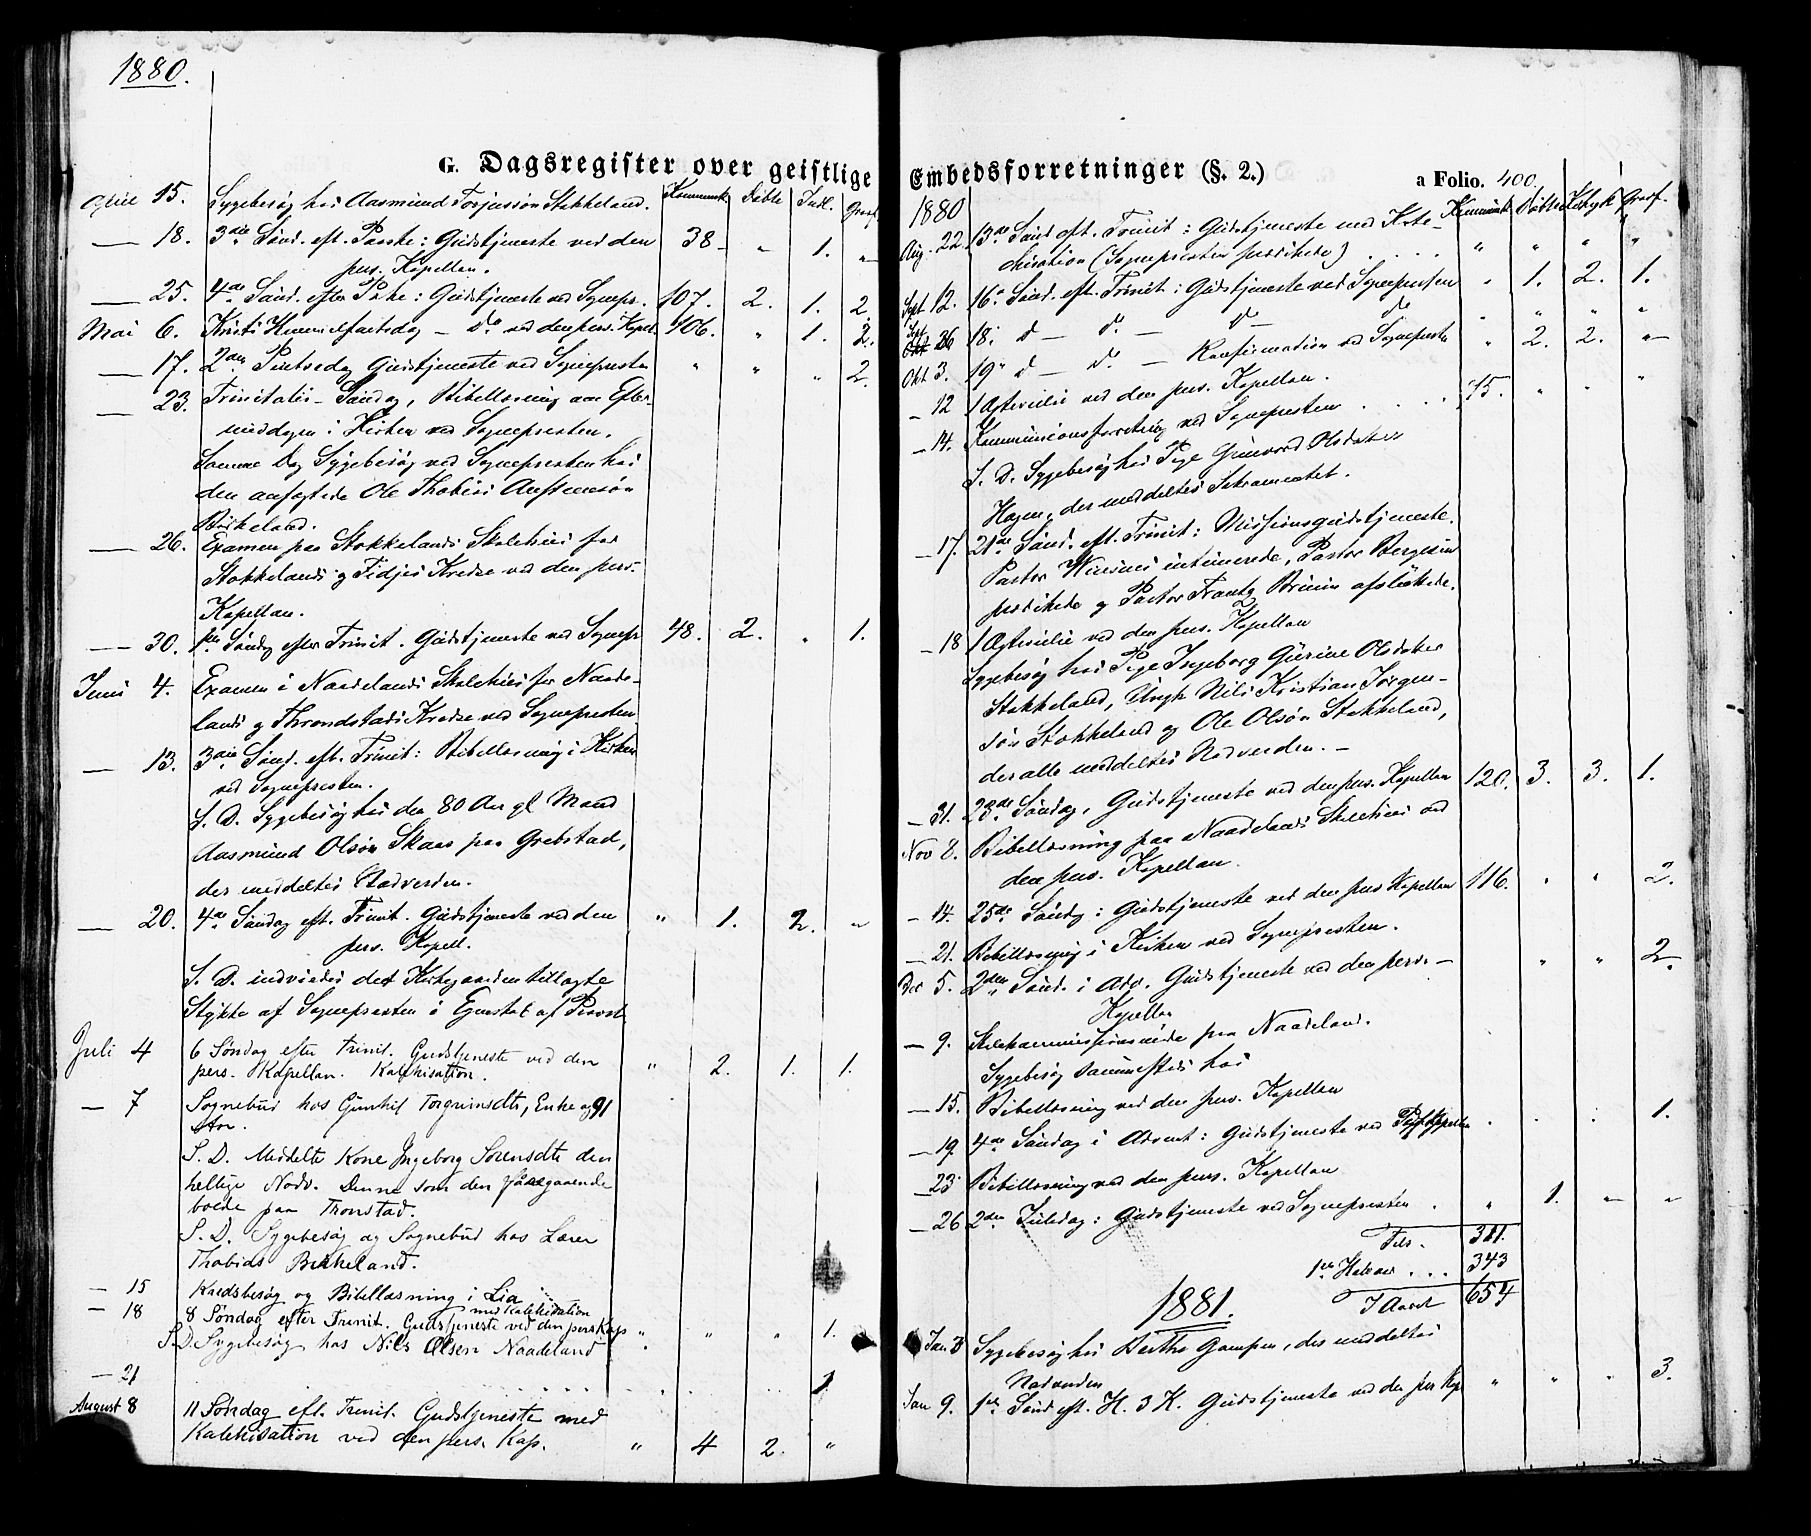 1880.
G. Dagsregister over geistlige
Kommunik. Døbte Intl. Graaf.
April 15. Sygebesøg hos Aasmund Torjussøn Stokkeland.
— 18. 3die Sønd. eft. Paaske: Gudstjeneste ved den 38 " 1. "
pers. Kapellan.
— 25. 4de Sønd. efter Paaske: Gudstjeneste ved Sognepr. 107. 2. 1. 2.
Mai 6. Kristi Himmelfartsdag — Do ved den pers. Kapel. 106. " 1. 2.
— 17. 2den Pintsedag Gudstjeneste ved Sognepresten " " " 2.
— 23. Trinitatis-Søndag, Bibellæsning om Efter-
middagen i Kirken ved Sognepresten.
Samme Dag Sygebesøg ved Sognepresten hos
den anfægtede Ole Thobias Austensøn
Birkeland.
— 26. Examen paa Stokkelands Skolehus for
Stokkelands og Fidjes Kredse ved den pers.
Kapellan.
— 30. 1ste Søndag efter Trinit. Gudstjeneste ved Sognepr 48. 2. " 1.
Juni 4. Examen i Naadelands Skolehus for Naade-
lands og Throndstads Kredse ved Sognepresten
— 13. 3die Sønd. eft. Trinit: Bibellæsning i Kirken
ved Sognepresten.
S. D. Sygebesøg hos den 80 Aar gl. Mand
Aasmund Olsøn Skaar paa Grebstad,
der meddeltes Nadverden.
— 20. 4de Søndag eft. Trinit. Gudstjeneste ved den " 1. 2. "
pers. Kapell.
S. D. indviedes det Kirkegaarden tillagte
Stykke af Sognepresten i Egenskab af Provst.
Juli 4 6 Søndag efter Trinit. Gudstjeneste ved den
pers. Kapellan. Katekisation. " 2. 1. 1.
— 7 Sognebud hos Gunhil Torgrimsdtr, Enke og 91
Aar.
S. D. Meddelte Kone Ingeborg Sørensdtr den
hellige Nadv. Denne som den foregaaende
boede paa Tronstad.
S. D. Sygebesøg og Sognebud hos Lærer
Thobias Birkeland.
— 15 Kredsbesøg og Bibellæsning i Lia
— 18 8 Søndag efter Trinit. Gudstjeneste ved den pers Kap " " " 1.
med Katekisation
S.D. Sygebesøg hos Nils Olsen Naadeland
— 21 1
August 8 11 Søndag eft. Trinit. Gudstjeneste med
Katekisation ved den pers. Kap. " 4 2. "
Embedsforretninger (§. 2.) a Folio. 400.
1880 Kommunik. Døbte Graaf.
Aug. 22. 13de Sønd. eft. Trinit: Gudstjeneste med Kate-
chisation (Sognepresten prædikede) . . . . " " " "
Sept 12. 16de Sønd. eft. Trinit: Gudstjeneste ved Sognepresten " 1. 2. 1.
Sept 26 18. d — do — do do " " " "
Okt 3. 19de d — do — Konfirmation ved Sognepresten " 2. 2. "
— 12 ved den pers. Kapellan.
— 14. Kommunionsforretning ved Sognepresten . . . . 15. " " "
S. D. Sygebesøg hos Pige Gunvord Olsdatter
Hagen, der meddeltes Sakramentet.
— 17. 21de Sønd. eft. Trinit: Missionsgudstjeneste.
Pastor intimerede, Pastor Bergesen
prædikede og Pastor Frantz Bruun afsluttede.
— 18 ved den pers. Kapellan
Sygebesøg hos Pige Ingeborg Gurine Olsdatter
Stokkeland, Ungk Nils Kristian Jørgen-
søn Stokkeland og Ole Olsøn Stokkeland,
der alle meddeltes Nadverden. —
— 31. 23de Søndag, Gudstjeneste ved den pers. Kapellan 120. 3. 3. 1.
Nov 8. Bibellæsning paa Naadelands Skolehus ved
den pers. Kapellan.
— 14. 25de Søndag: Gudstjeneste ved den pers Kapellan 116. " " 2.
— 21. Bibellæsning i Kirken ved Sognepresten.
Dec 5. 2den Sønd. i Adv. Gudstjeneste ved den pers. — " " 2.
Kapellan
— 9. Skolekommissionsmøde paa Naadeland.
Sygebesøg sammesteds hos
— 15. Bibellæsning ved den pers. Kapellan
— 19. 4de Søndag i Advent: Gudstjeneste ved Kapellan . . . 1.
— 23 Bibellæsning ved den pers. Kapellan
— 26 2den Juledag: Gudstjeneste ved Sognepresten . " 1. " "
Tils. 311.
1ste Halvaar . . . 343
I Aaret 654
1881.
Jan 3 Sygebesøg hos Berthe Gampen, der meddeltes
Nadverden
Jan 9. 1ste Sønd eft. H. 3 K. Gudstjeneste ved den pers Kap " " " 3.